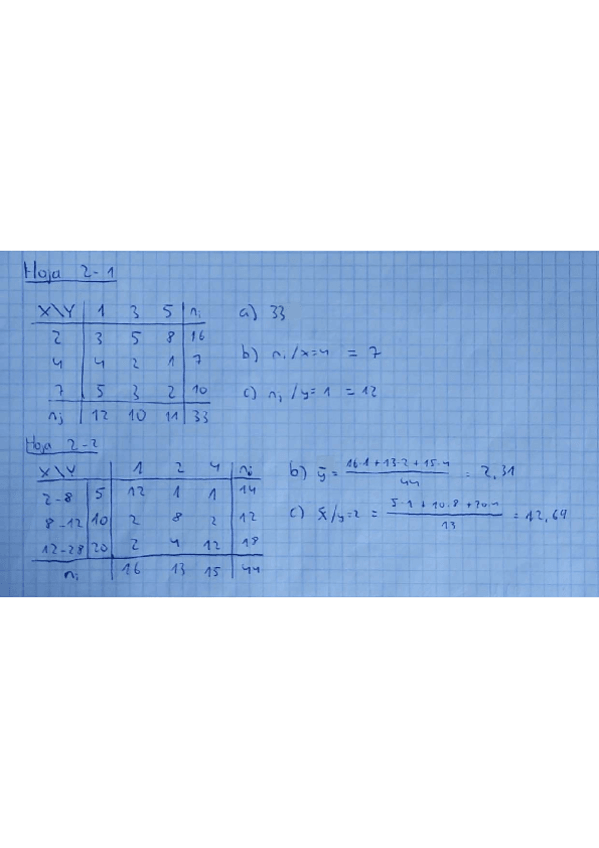 Hoja 2-1
X\Y 1 3 5 ni
2 3 5 8 16
4 4 2 1 7
7 5 3 2 10
nj 12 10 11 33
a) 33
b) ni/x=4 = 7
c) nj/y=1 = 12
Hoja 2-2
X\Y 1 2 4 ni
2-8 5 12 1 1 14
8-12 10 2 8 2 12
12-28 20 2 4 12 18
nj 16 13 15 44
b) ȳ = (16·1+13·2+15·4)/44 = 2,31
c) x̄/y=2 = (5·1+10·8+20·4)/13 = 12,69